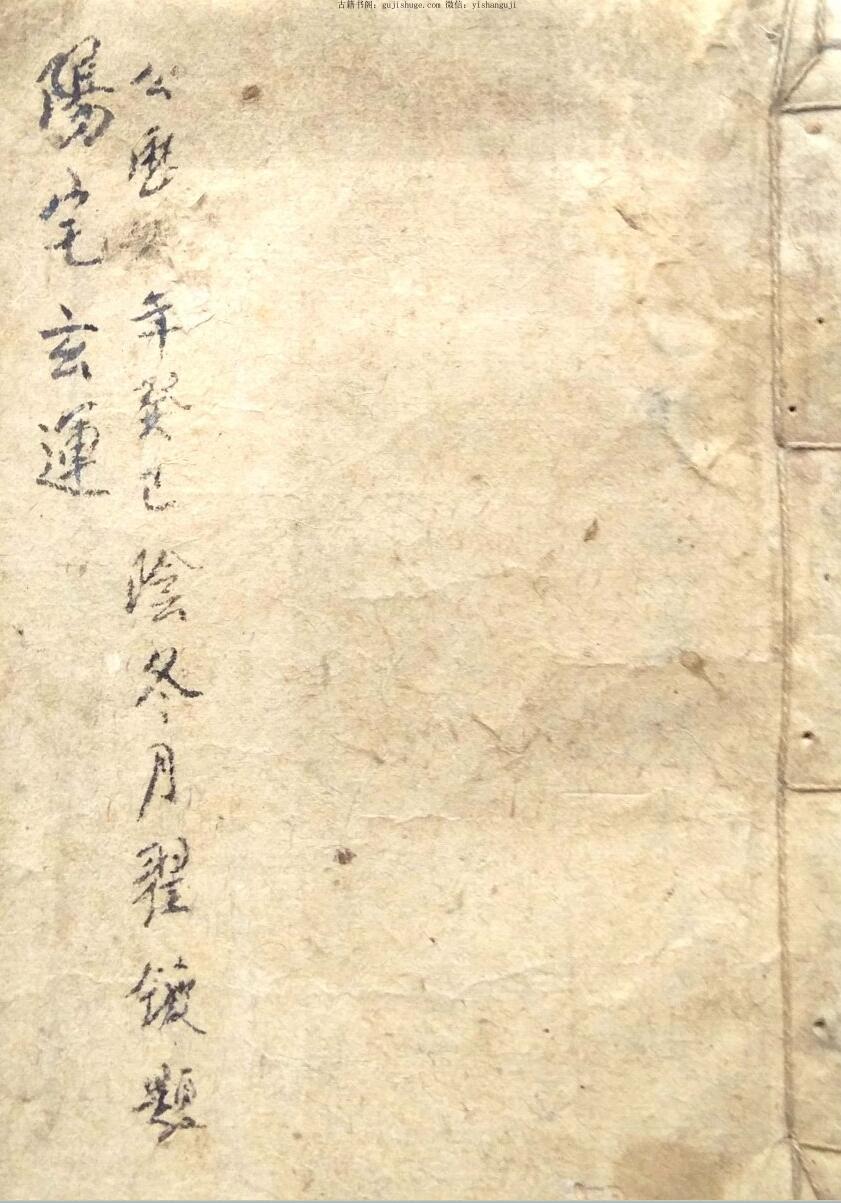 古籍书阁：gujishuge.com 微信：yishanguji
公歷年癸巳陰冬月翟題
陽宅玄運